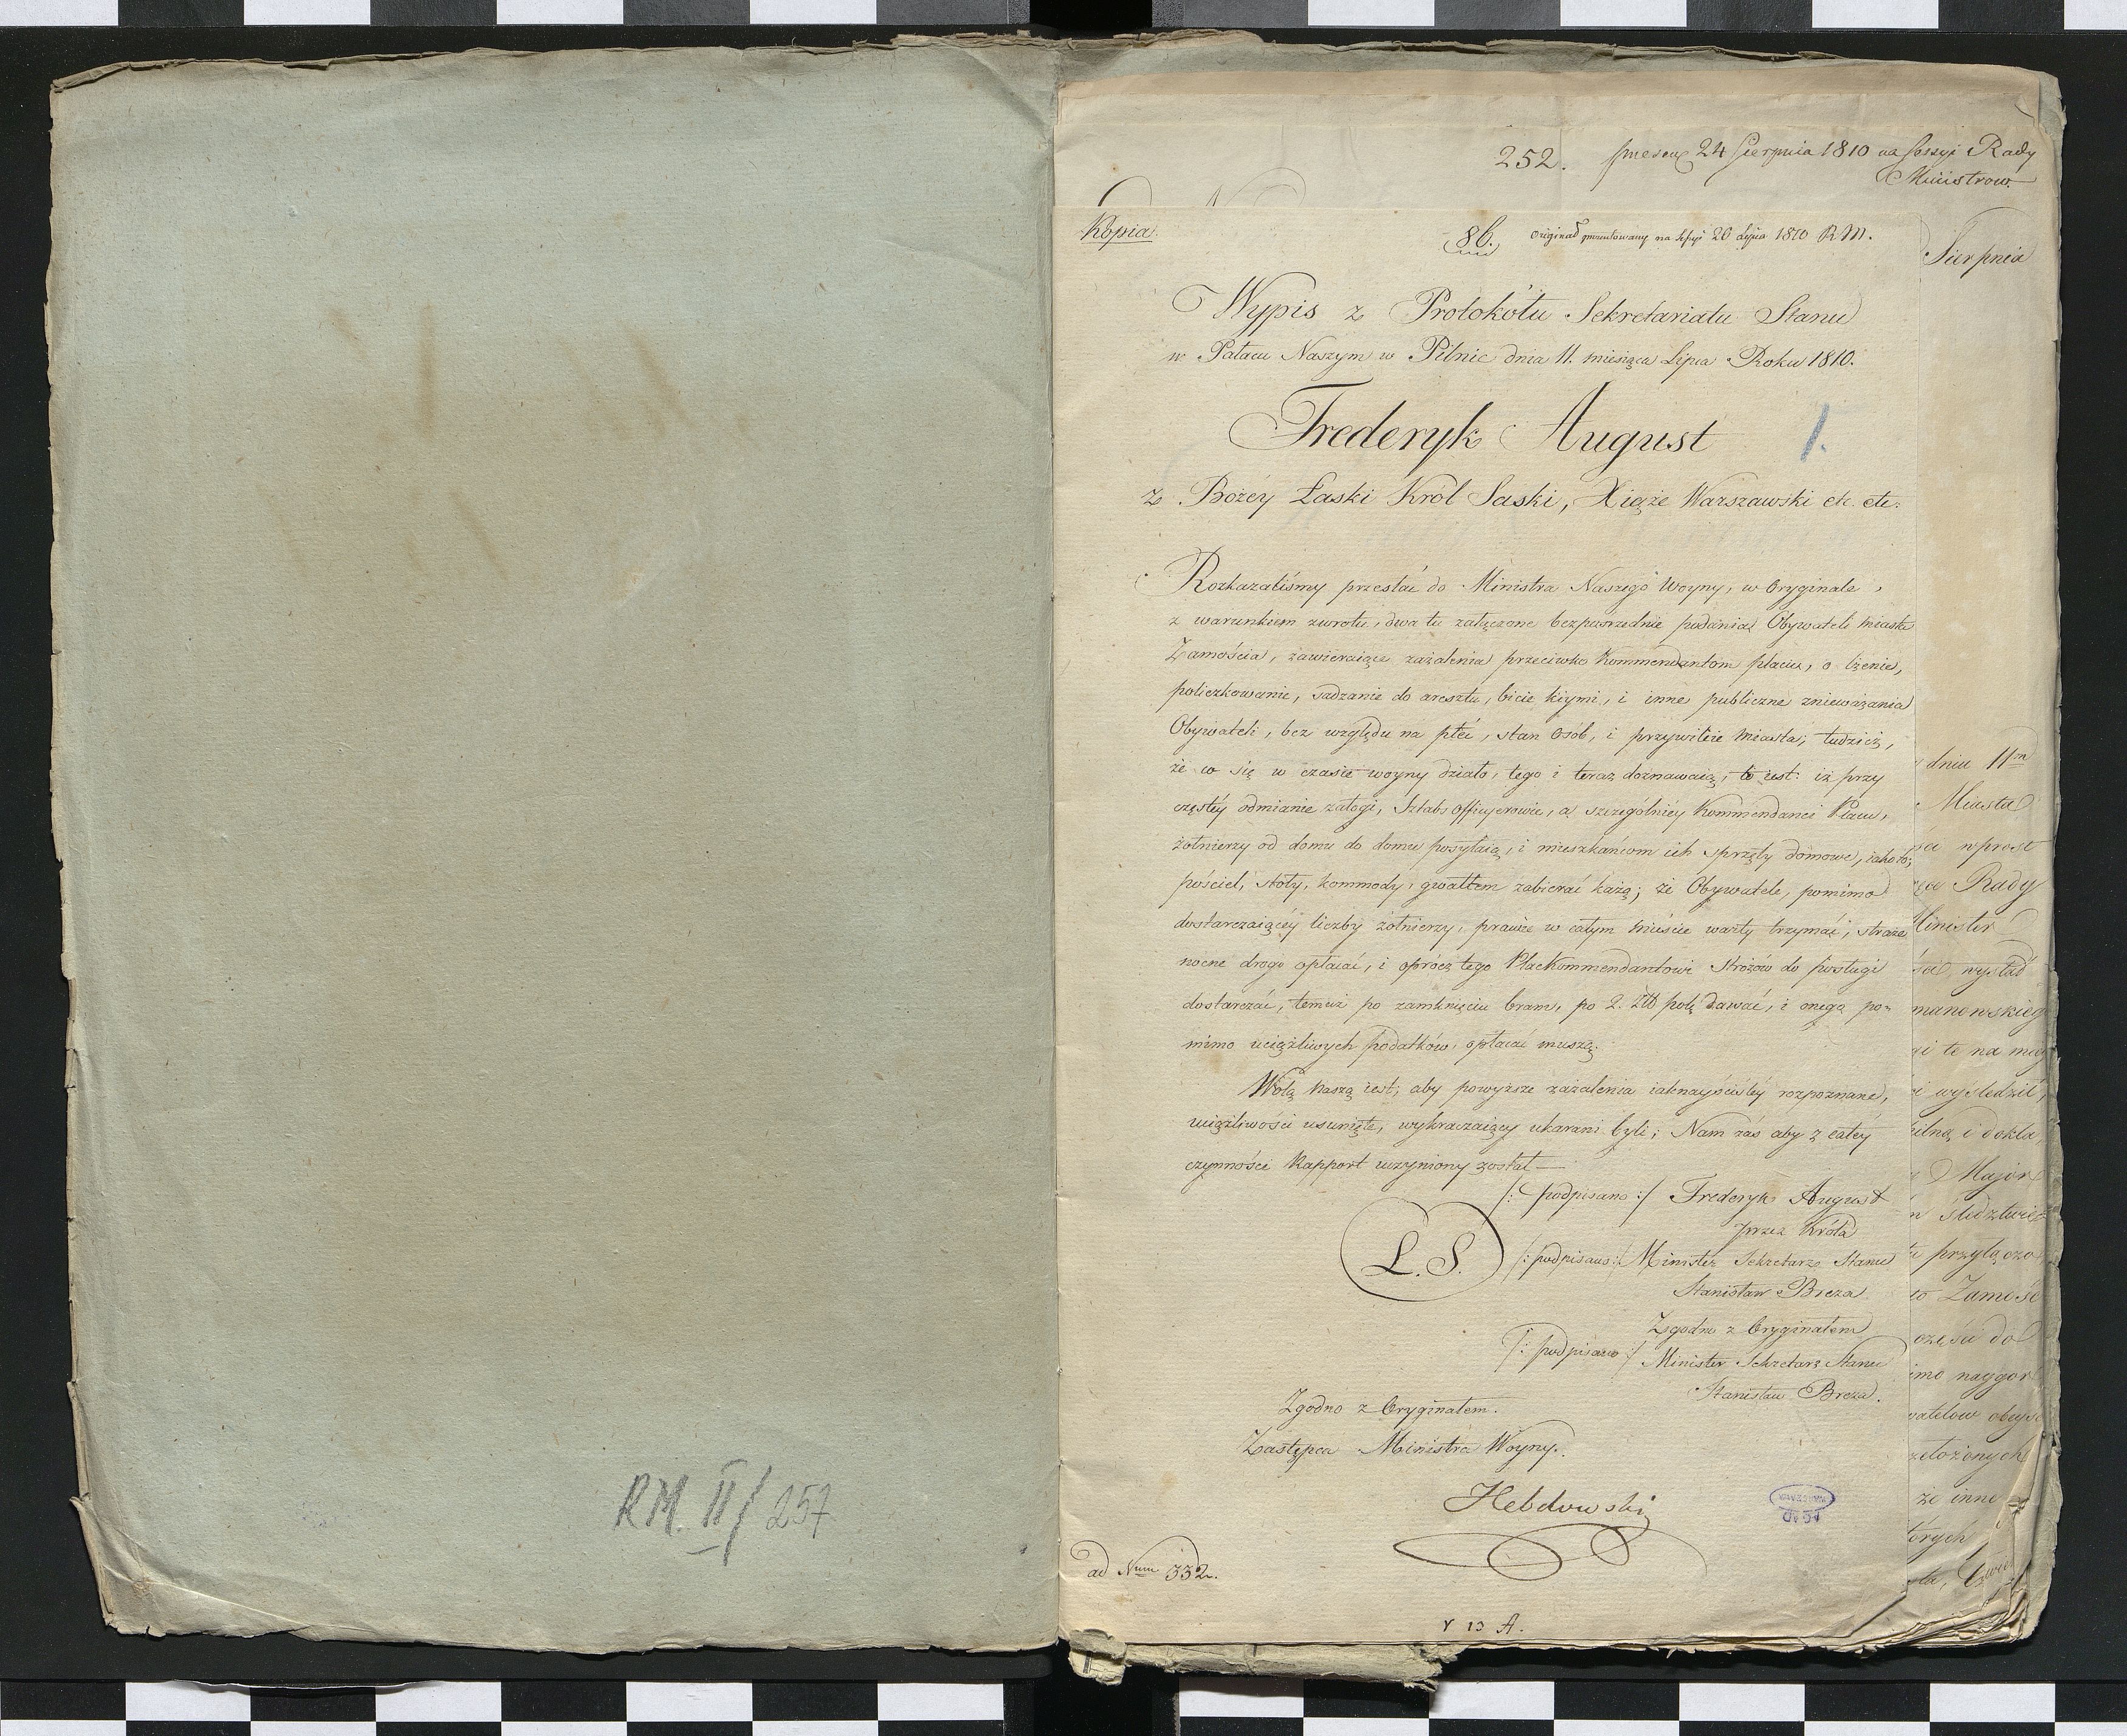 RM. II/257
252. 24 Sierpnia 1810 na Sessyi Rady
Ministrow.
Kopia.
86. originał prezentowany na Sessyi 20 Lipca 1810 R M.
Sierpnia
Wypis z Protokółu Sekretariatu Stanu
w Pałacu Naszym w Pilnic dnia 11. miesiąca Lipca Roku 1810.
Frederyk August
1.
z Bożéy Łaski Król Saski, Xiąże Warszawski etc. etc.
Rozkazaliśmy przesłać do Ministra Naszego Woyny, w Oryginale,
z warunkiem zwrotu, dwa tu załączone bezpośrednie podania Obywateli miasta
Zamościa, zawieraiące zażalenia przeciwko Kommendantom placu, o lżenie,
policzkowanie, sadzanie do aresztu, bicie kiymi, i inne publiczne znieważania
Obywateli, bez względu na płeć, stan osób, i przywileie miasta; tudzież,
że co się w czasie woyny działo, tego i teraz doznawaią, to iest: iż przy
częstéy odmianie załogi, Sztabs officyerowie, a szczególniéy Kommendanci Placu,
żołnierzy od domu do domu posyłaią, i mieszkańcom ich sprzęty domowe, iako to;
pościel, stoły, kommody, gwałtem zabierać każą; że Obywatele, pomimo
dostarczaiącéy liczby żołnierzy, prawie w całym mieście warty trzymać, straże
nocne drogo opłacać, i oprócz tego PlacKommendantowi Stróżów do posługi
dostarczać, temuż po zamknięciu bram, po 2. Złł pols dawać, i onego po-
mimo uciążliwych podatków, opłacać muszą.
Wolą naszą iest, aby powyższe zażalenia iaknayściśléy rozpoznane,
uciążliwości usunięte, wykraczaiący ukarani byli; Nam zaś aby z całéy
czynności Rapport uczyniony został —
/: podpisano :/ Frederyk August
przez Króla
L. S.
/: podpisano :/ Minister Sekretarz Stanu
Stanisław Breza
Zgodno z Oryginałem
/: podpisano :/ Minister Sekretarz Stanu
Stanisław Breza.
Zgodno z Oryginałem.
Zastępca Ministra Woyny.
Hebdowski
AGAD
WARSZAWA
ad Num 332.
V 13 A.
dniu 11m
Miasta
wprost
Rady
Minister
wysłać
manowskieg
i te na mie
i wyśledzić,
pilną i dokła
Major
śledztwie
przyłącza
Zamość
części do
imo naygor
watelow
że inne
tórych